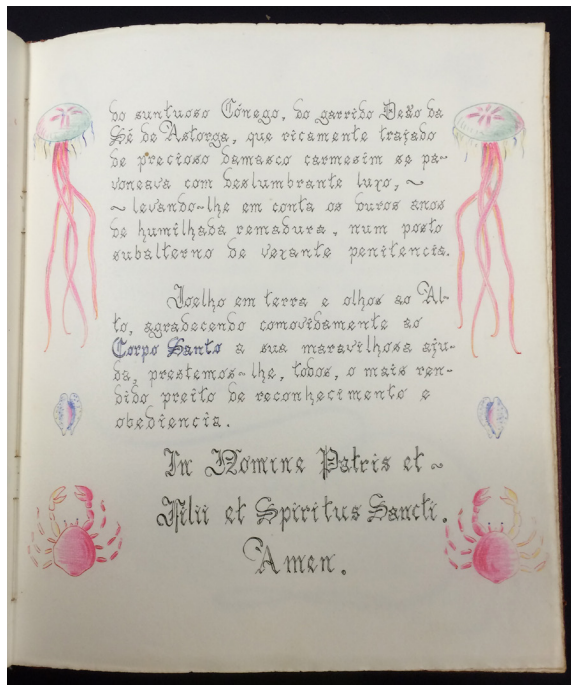 do suntuoso Cónego, do garrido Deão da
Sé de Astorga, que ricamente trajado
de precioso damasco carmesim se pa-
voneava com deslumbrante luxo, ~
~ levando-lhe em conta os duros anos
de humilhada remadura, num posto
subalterno de vexante penitencia.
Joelho em terra e olhos ao Al-
to, agradecendo comovidamente ao
Corpo Santo a sua maravilhosa aju-
da, prestemos-lhe, todos, o mais ren-
dido preito de reconhecimento e
obediencia.
In Nomine Patris et ~
Filii et Spiritus Sancti.
Amen.